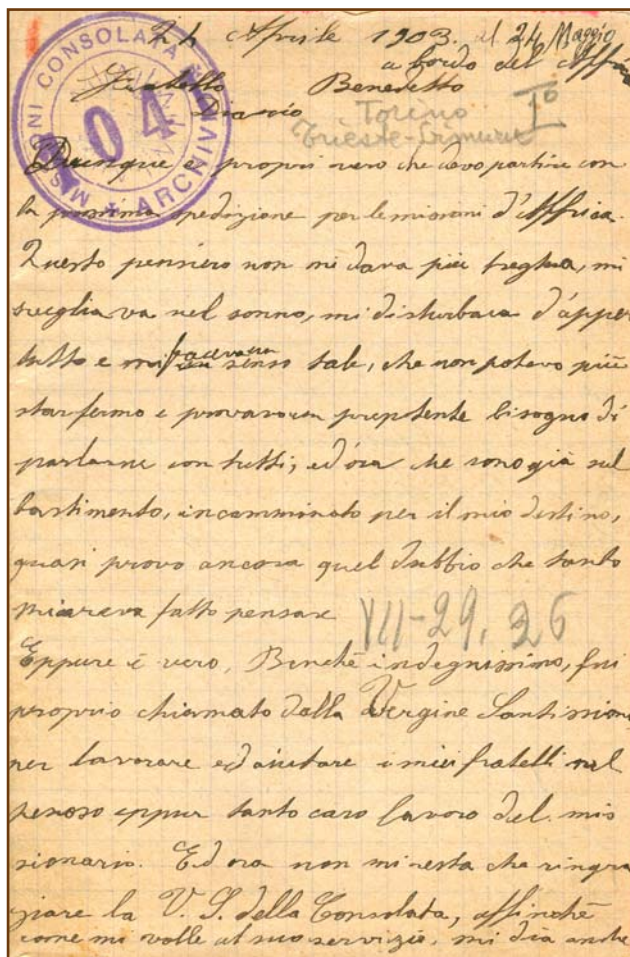 24 Aprile 1903. al 24 Maggio
a bordo del Affrica
Fratello Benedetto
Diario
Iº
Torino
Trieste-Limuru
MISSIONI CONSOLATA ARCHIVIO
104
Dunque è propri vero che devo partire con
la prossima spedizione per le missioni d'Affrica.
Questo pensiero non mi dava più tregua, mi
sveglia va nel sonno, mi disturbava d'apper
tutto e mi faceva un senso tale, che non potevo più
star fermo e provavo un prepotente bisogno di
parlarne con tutti; ed'ora che sono già sul
bastimento, incamminato per il mio destino,
quasi provo ancora quel dubbio che tanto
mi aveva fatto pensare
VII-29, 36
Eppure è vero, Benchè indegnissimo, fui
proprio chiamato dalla Vergine Santissima
per lavorare ed aiutare i miei fratelli nel
penoso eppur tanto caro lavoro del mis
sionario. Ed ora non mi resta che ringra
ziare la V. S. della Consolata, affinchè
come mi volle al suo servizio, mi dia anche